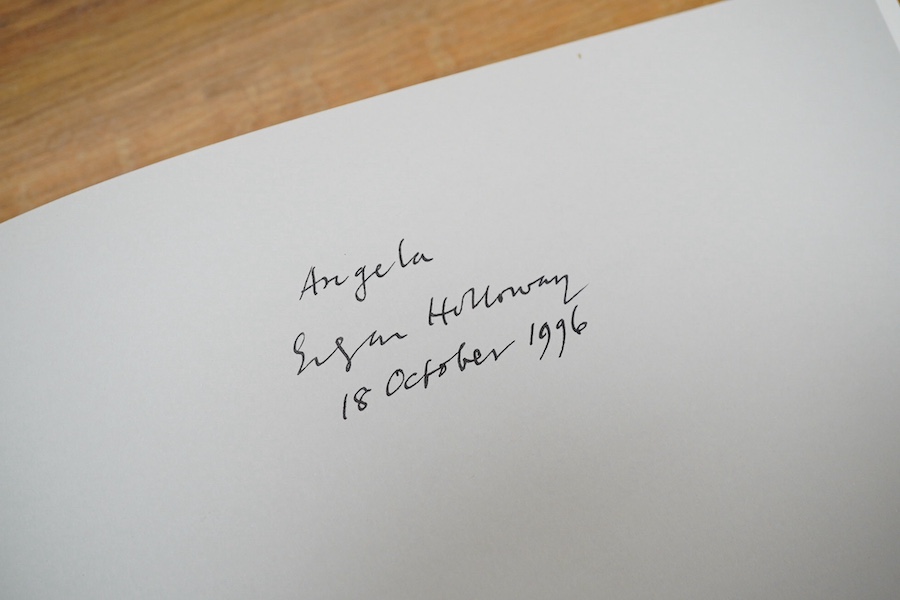 Angela
Edgar Holloway
18 October 1996